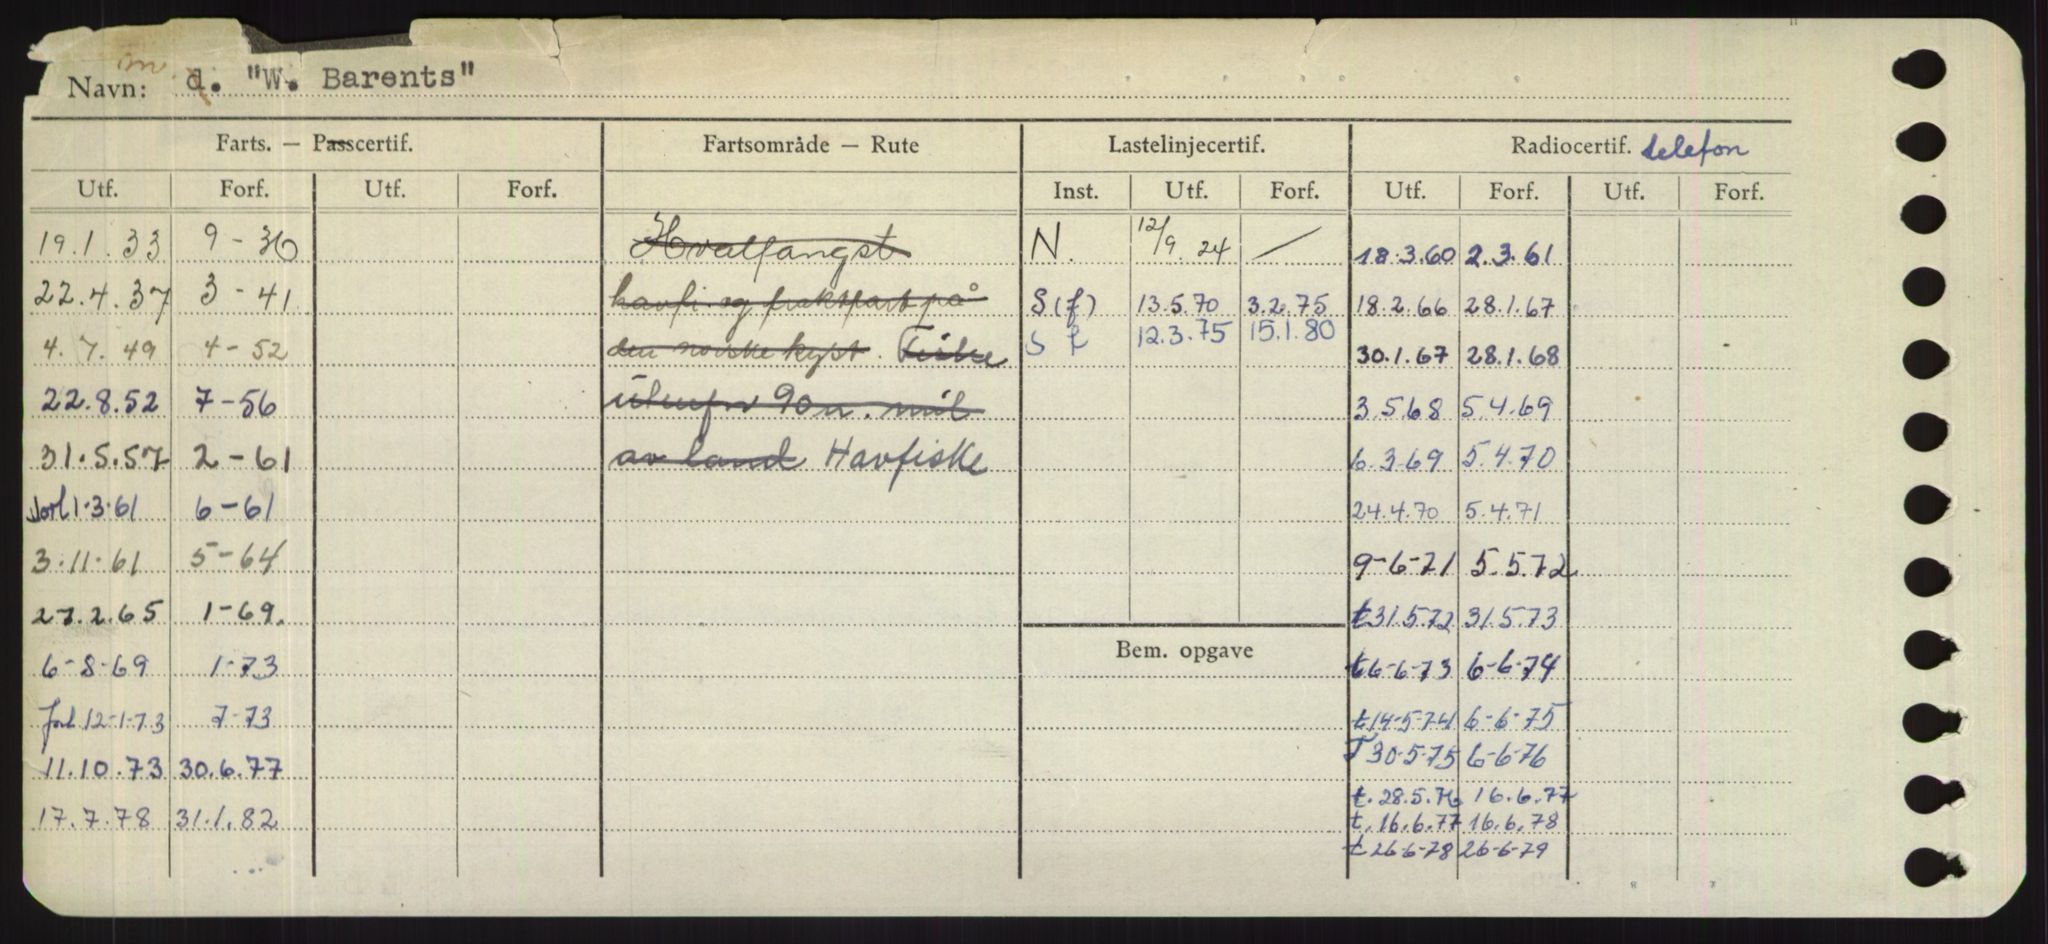 Navn: m. d. "W. Barents"
Farts. — Passcertif. Fartsområde — Rute Lastelinjecertif. Radiocertif. telefon
Utf. Forf. Utf. Forf. Inst. Utf. Forf. Utf. Forf. Utf. Forf.
19.1.33 9-36 Hvalfangst N. 12/9. 24 — 18.3.60 2.3.61
22.4.37 3-41 havfi. og fraktfart på S(f) 13.5.70 3.2.75 18.2.66 28.1.67
4.7.49 4-52 den norske kyst. Fiske S f 12.3.75 15.1.80 30.1.67 28.1.68
22.8.52 7-56 utenfor 90 n. mil 3.5.68 5.4.69
31.5.57 2-61 av land Havfiske 6.3.69 5.4.70
forl 1.3.61 6-61 24.4.70 5.4.71
3.11.61 5-64 9-6-71 5.5.72
27.2.65 1-69. t 31.5.72 31.5.73
6-8-69 1-73 Bem. opgave t 6-6-73 6-6-74
forl. 12-1-73 7-73 t 14-5-74 6-6-75
11.10.73 30.6.77 T 30-5-75 6-6-76
t. 28.5.76 16.6.77
17.7.78 31.1.82 t. 16.6.77 16.6.78
t 26-6-78 26-6-79